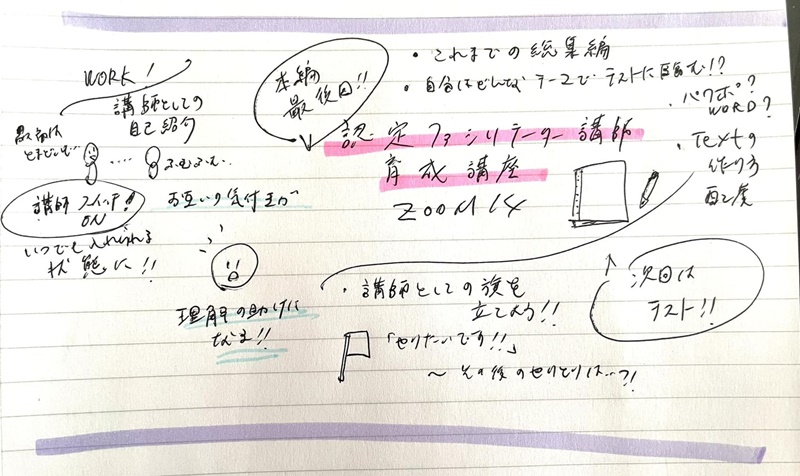 WORK!
講師としての
自己紹介
最初は
とまどいも…
ふむふむ…
講師スイッチ!
ON
いつでも入れられる
状態に!!
お互いの気付きが
理解の助けに
なる!!
本編
最後回!!
認定ファシリテーター講師
育成講座
ZOOM14
・これまでの総集編
・自分はどんなテーマでテストに臨む!?
・パワポ?
WORD?
・Textの
作り方
配慮
・講師としての旗を
立てよう!!
「やりたいです!!」
〜その後のやりとりは…?!
次回は
テスト!!